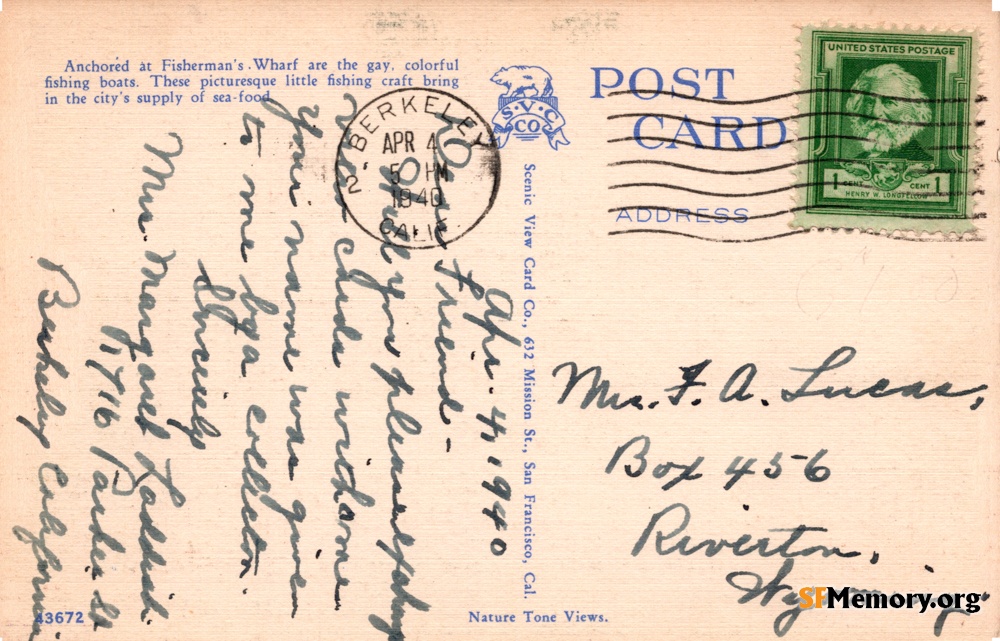 Anchored at Fisherman's Wharf are the gay, colorful
fishing boats. These picturesque little fishing craft bring
in the city's supply of sea-food
S.V.C.
CO.
POST
CARD
ADDRESS
UNITED STATES POSTAGE
1 CENT CENT 1
HENRY W. LONGFELLOW
BERKELEY
APR 4
5 PM
1940
CALIF.
2
Apr. 4, 1940
Dear Friend -
Would you please exchange
cards with me.
Your name was given
to me by a collector.
Sincerely
Mrs. Margaret
1716 Parker St
Berkeley California
Scenic View Card Co., 632 Mission St., San Francisco, Cal.
Mrs. F. A. Lucas,
Box 456
Riverton,
Wyoming.
43672
Nature Tone Views.
SFMemory.org